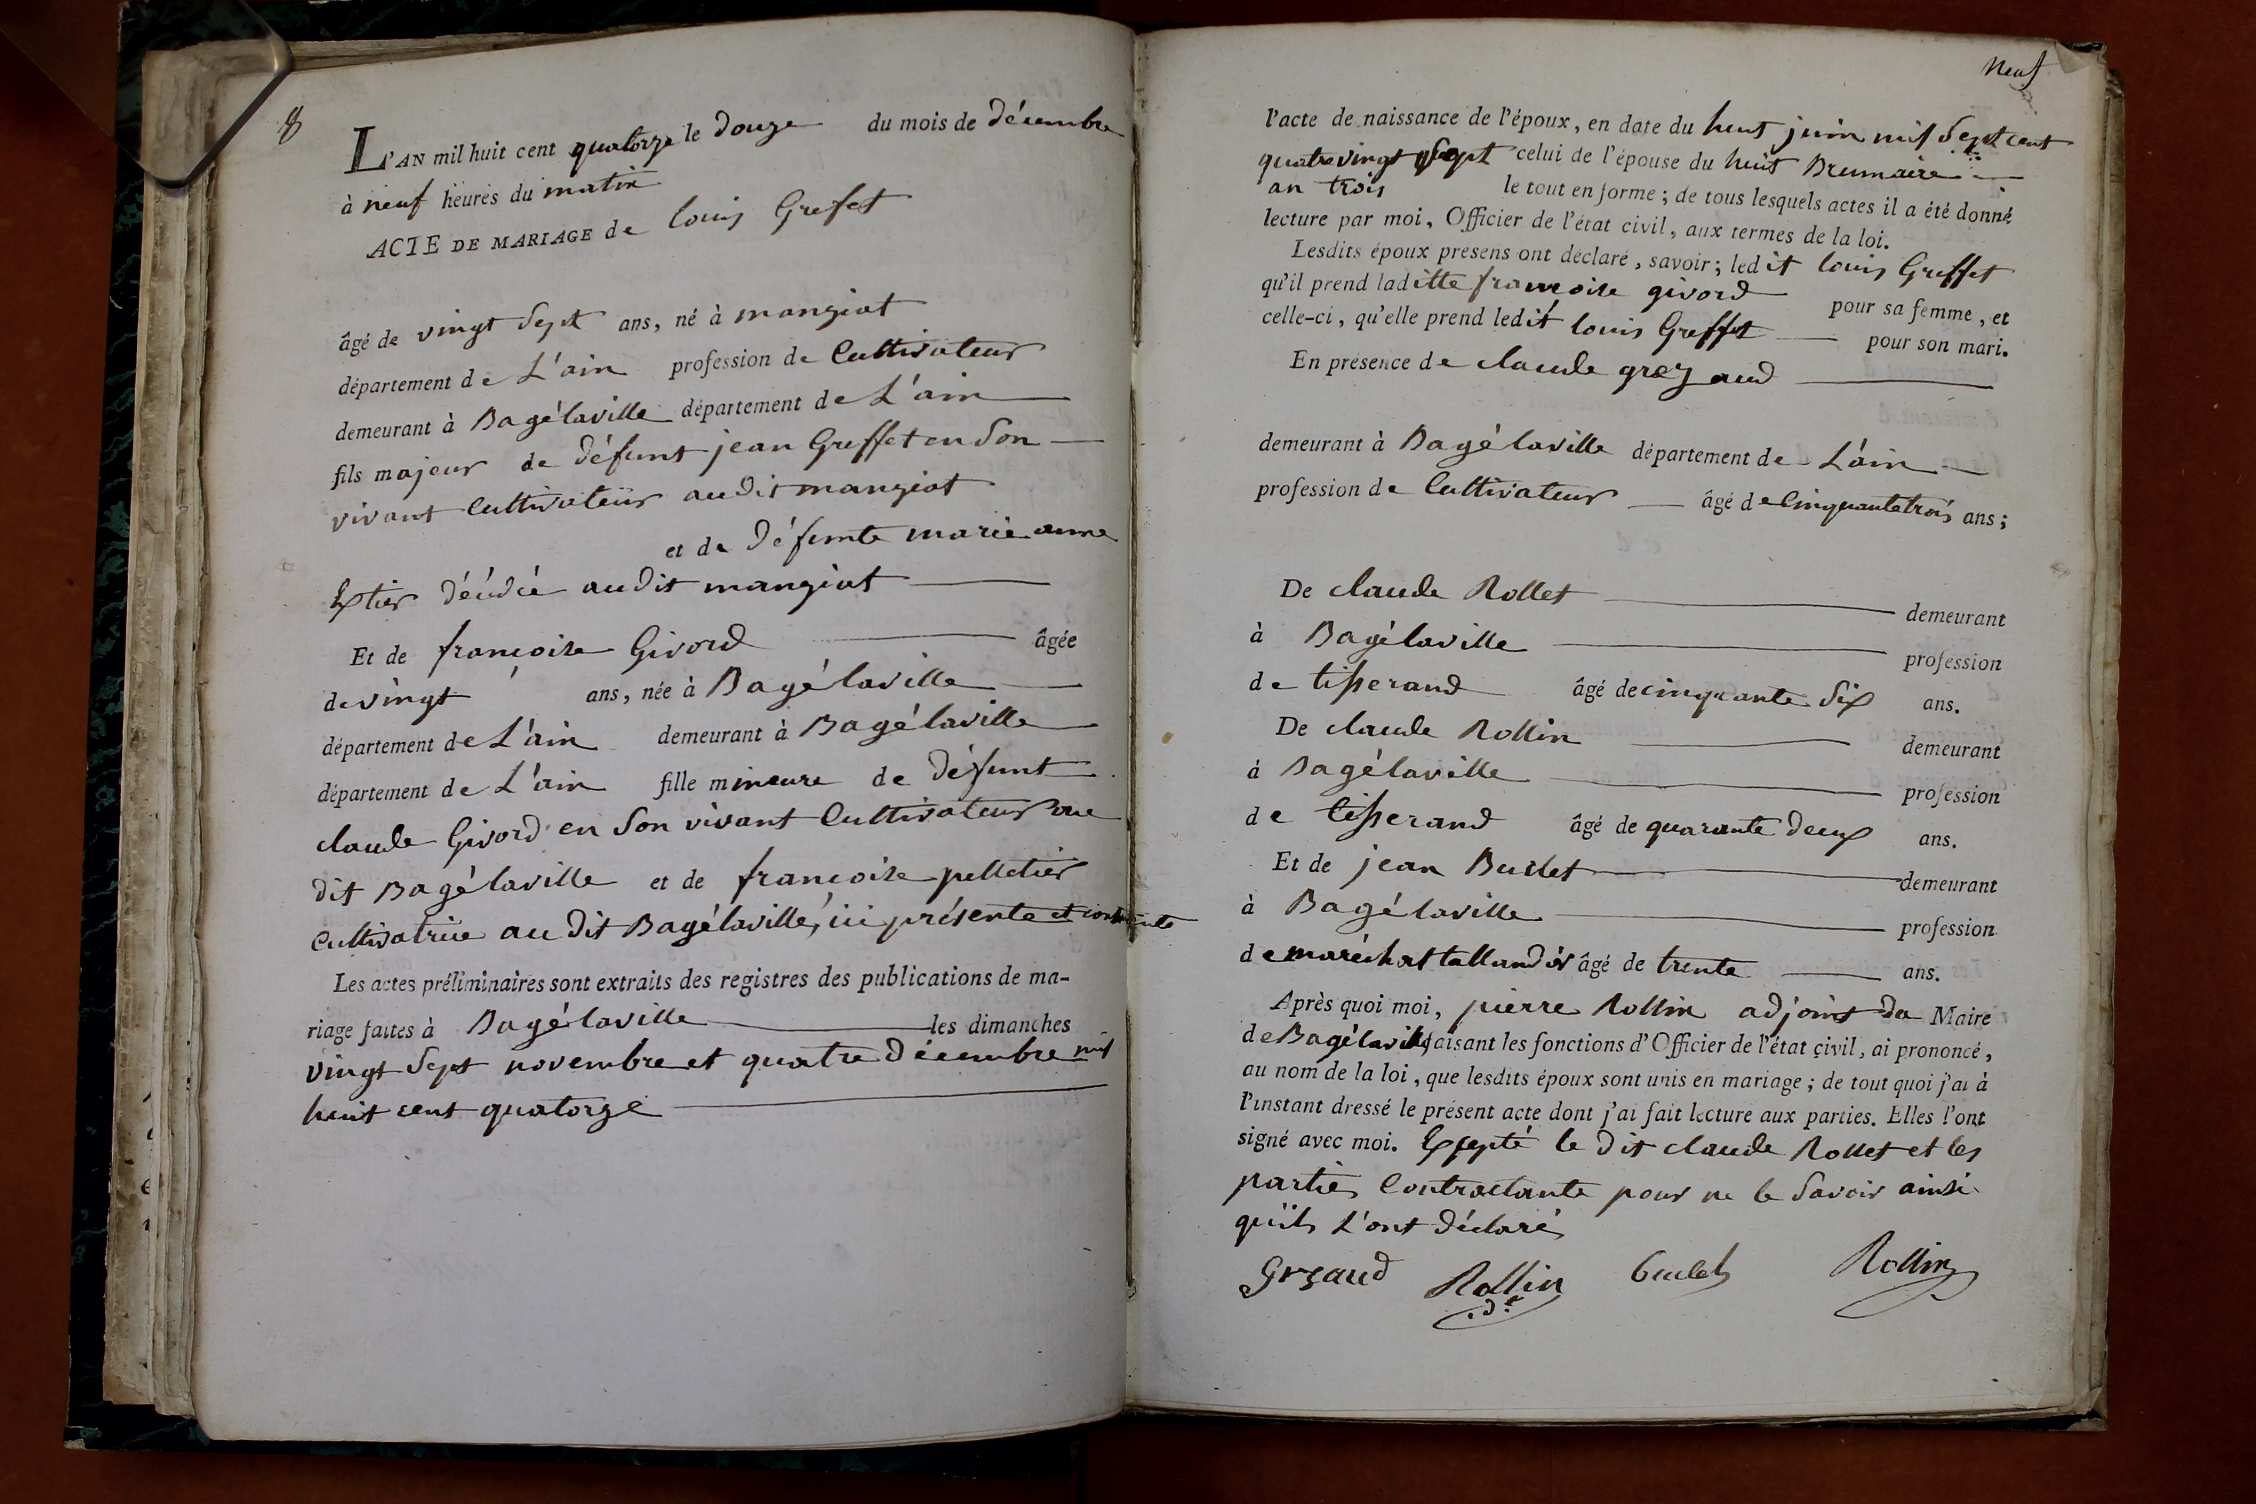 8
L'AN mil huit cent quatorze le douze du mois de décembre
à neuf heures du matin
ACTE DE MARIAGE de louis Grefet
âgé de vingt sept ans, né à mangiat
département de L'ain profession de Cultivateur
demeurant à Bagélaville département de L'ain
fils majeur de défunt jean Greffet en son
vivant Cultivateur audit mangiat
et de défunte marie anne
décédée audit mangiat
Et de francoise Givord âgée
de vingt ans, née à Bagélaville
département de L'ain demeurant à Bagélaville
département de L'ain fille mineure de défunt
claude Givord en son vivant Cultivateur au
dit Bagélaville et de francoise pelletier
Cultivatrice au dit Bagélaville, ici présente et
Les actes préliminaires sont extraits des registres des publications de ma-
riage faites à Bagélaville les dimanches
vingt sept novembre et quatre décembre mil
huit cent quatorze
Neuf
l'acte de naissance de l'époux, en date du huit juin mil sept cent
quatrevingt sept celui de l'épouse du huit Brumaire
an trois le tout en forme; de tous lesquels actes il a été donné
lecture par moi, Officier de l'état civil, aux termes de la loi.
Lesdits époux présens ont déclaré, savoir; ledit louis Greffet
qu'il prend laditte francoise givord pour sa femme, et
celle-ci, qu'elle prend ledit louis Greffet pour son mari.
En présence de claude
demeurant à Bagélaville département de L'ain
profession de Cultivateur âgé de Cinquantetrois ans;
De claude Rollet demeurant
à Bagélaville profession
de tisserand âgé de cinquante six ans.
De claude Rollin demeurant
à Bagélaville profession
de tisserand âgé de quarante deux ans.
Et de jean Buclet demeurant
à Bagélaville profession
de maréchal tallandier âgé de trente ans.
Après quoi moi, pierre Rollin adjoint du Maire
de Bagélaville faisant les fonctions d'Officier de l'état civil, ai prononcé,
au nom de la loi, que lesdits époux sont unis en mariage; de tout quoi j'ai à
l'instant dressé le présent acte dont j'ai fait lecture aux parties. Elles l'ont
signé avec moi. Excepté le dit claude Rollet et les
parties Contractante pour ne le savoir ainsi
qu'ils L'ont déclaré
Rollin Rollin